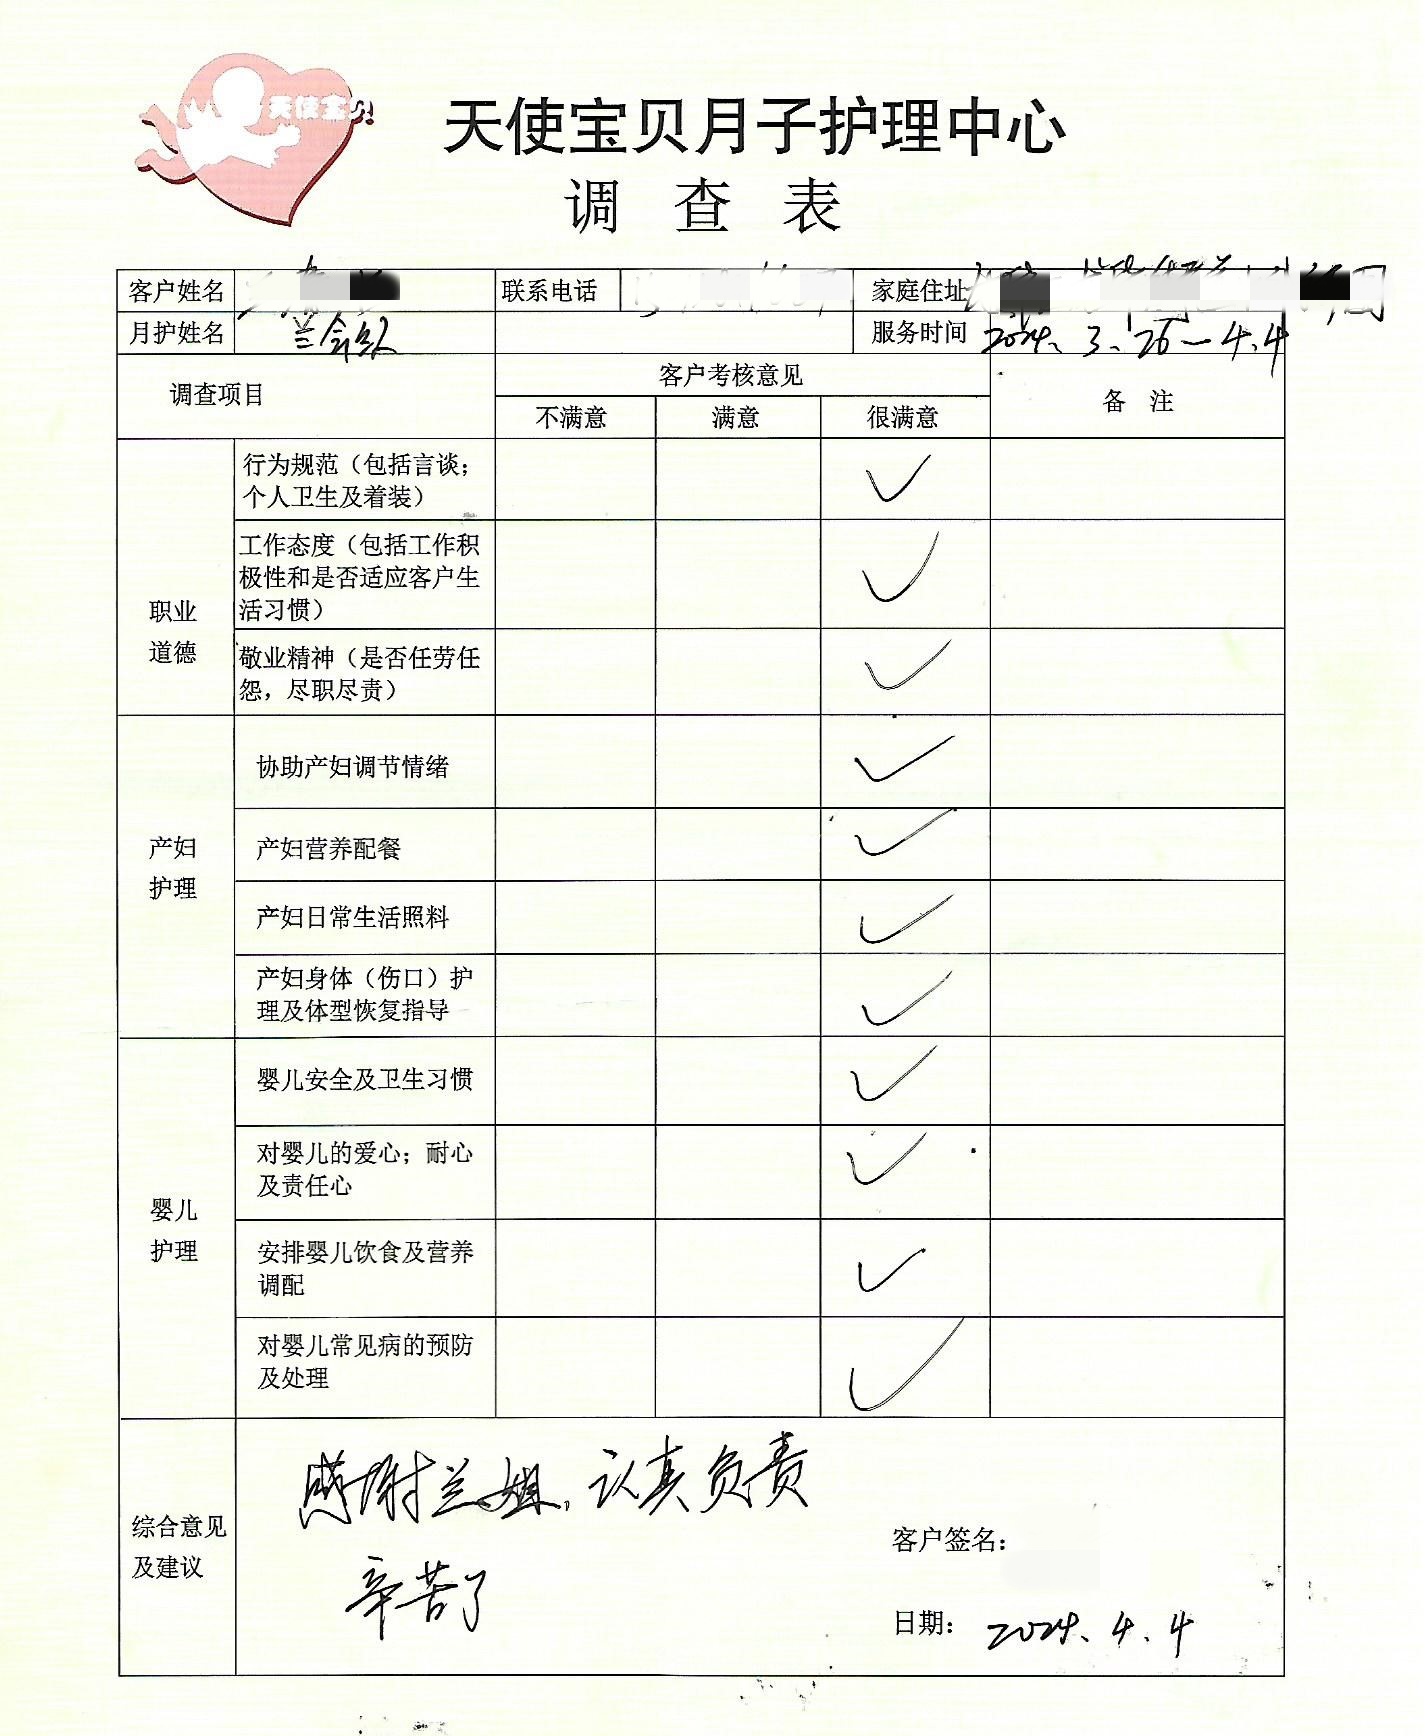 天使宝贝
天使宝贝月子护理中心
调 查 表
客户姓名 联系电话 家庭住址
月护姓名 兰 服务时间 2024.3.26-4.4
调查项目 客户考核意见 备 注
不满意 满意 很满意
职业
道德
行为规范（包括言谈；
个人卫生及着装）
工作态度（包括工作积
极性和是否适应客户生
活习惯）
敬业精神（是否任劳任
怨，尽职尽责）
产妇
护理
协助产妇调节情绪
产妇营养配餐
产妇日常生活照料
产妇身体（伤口）护
理及体型恢复指导
婴儿
护理
婴儿安全及卫生习惯
对婴儿的爱心；耐心
及责任心
安排婴儿饮食及营养
调配
对婴儿常见病的预防
及处理
综合意见
及建议
感谢兰姐，认真负责
辛苦了
客户签名：
日期：2024.4.4